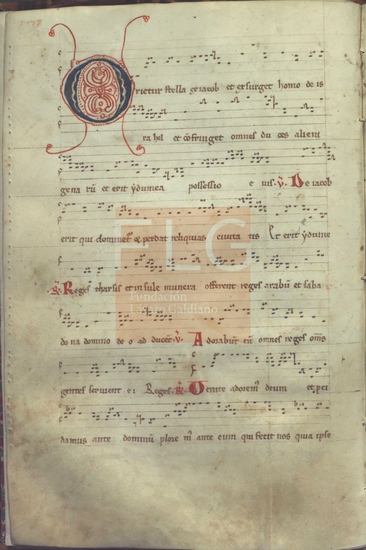 Orietur stella ex iacob et exsurget homo de is
rahel et cōfringet omnes du ces alieni
gena rū et erit ydumea possessio e ius. V. De iacob
erit qui dominet et perdat reliquias civita tis Et erit ydume
R. Reges tharsis et insule munera offerent reges arabū et saba
do na domino de o ad ducēt V. Adorabūt eū omnes reges om̄s
gentes servient e i Reges R. Venite adorem⁹ deum et pci
damus ante dominū plore m⁹ ante eum qui fecit nos quia ipse
FLG
Fundación
Lázaro Galdiano